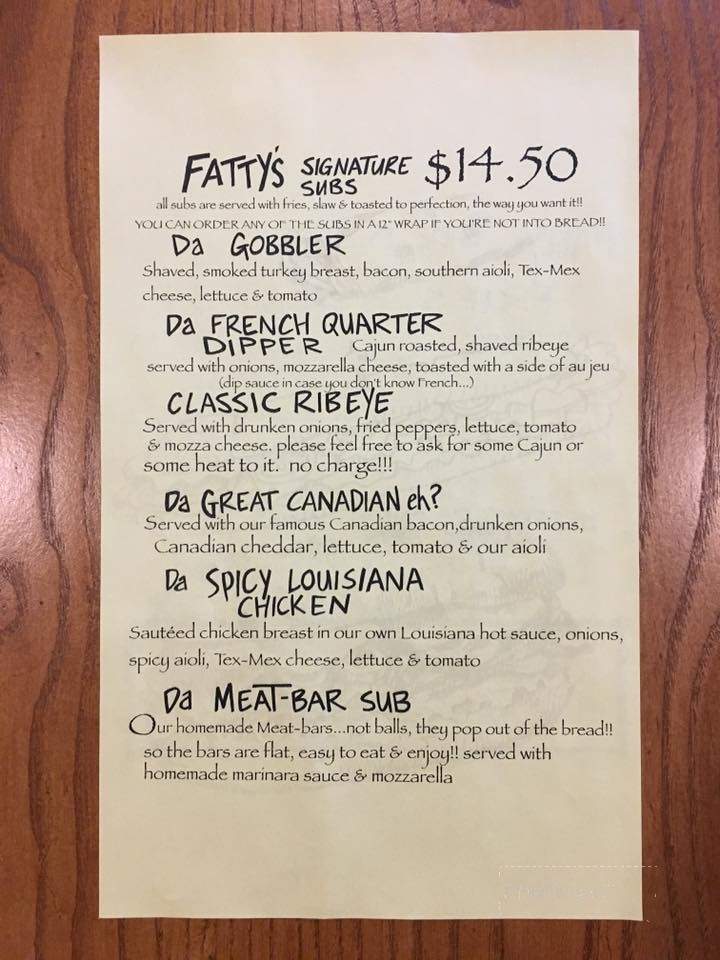 FATTY'S SIGNATURE SUBS $14.50
all subs are served with fries, slaw & toasted to perfection, the way you want it!!
YOU CAN ORDER ANY OF THE SUBS IN A 12" WRAP IF YOU'RE NOT INTO BREAD!!
Da GOBBLER
Shaved, smoked turkey breast, bacon, southern aioli, Tex-Mex
cheese, lettuce & tomato
Da FRENCH QUARTER
DIPPER Cajun roasted, shaved ribeye
served with onions, mozzarella cheese, toasted with a side of au jeu
(dip sauce in case you don't know French...)
CLASSIC RIBEYE
Served with drunken onions, fried peppers, lettuce, tomato
& mozza cheese. please feel free to ask for some Cajun or
some heat to it. no charge!!!
Da GREAT CANADIAN eh?
Served with our famous Canadian bacon,drunken onions,
Canadian cheddar, lettuce, tomato & our aioli
Da SPICY LOUISIANA
CHICKEN
Sautéed chicken breast in our own Louisiana hot sauce, onions,
spicy aioli, Tex-Mex cheese, lettuce & tomato
Da MEAT-BAR SUB
Our homemade Meat-bars...not balls, they pop out of the bread!!
so the bars are flat, easy to eat & enjoy!! served with
homemade marinara sauce & mozzarella